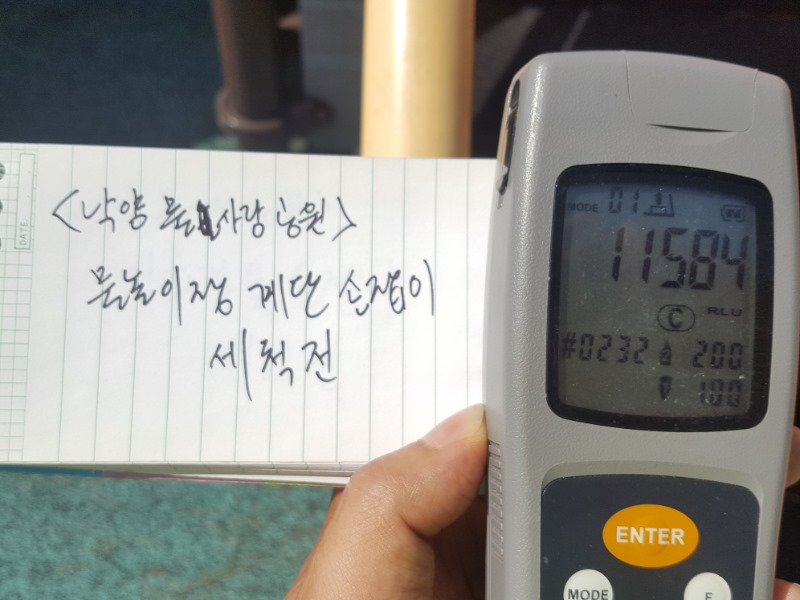 <낙양 물사랑 공원>
물놀이장 계단 손잡이
세척전
DATE
MODE 01
11584
RLU
C
#0232 200
100
ENTER
MODE